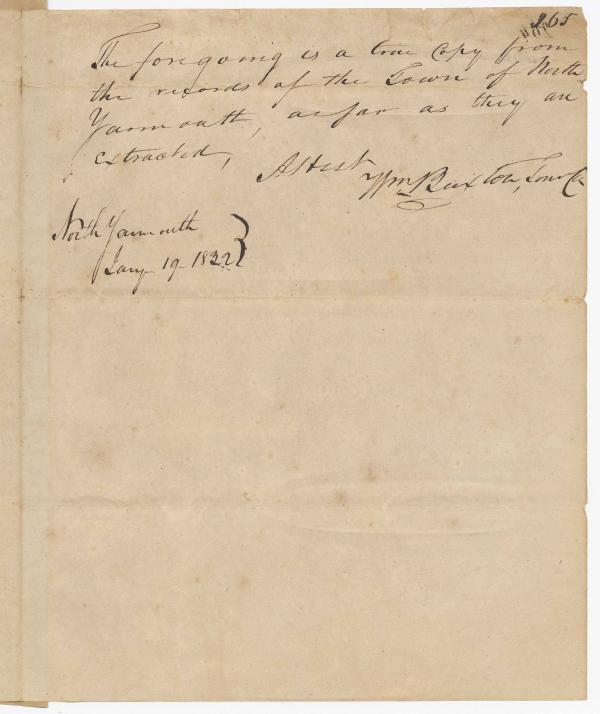 265
The foregoing is a true Copy from
the records of the Town of North
Yarmouth, as far as they are
extracted,
Attest
Wm Buxton, Town Ck
North Yarmouth
Jany 19 1822